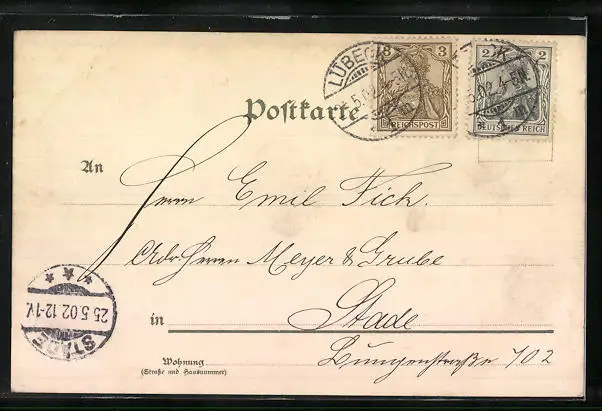 3 3
REICHSPOST
2 2
DEUTSCHES REICH
LÜBECK
5.02
Postkarte
An
Herrn Emil Fick.
Adr. Herren Meyer & Grube
in Stade
Wohnung
(Straße und Hausnummer)
STADE
25.5.02.12-1V.